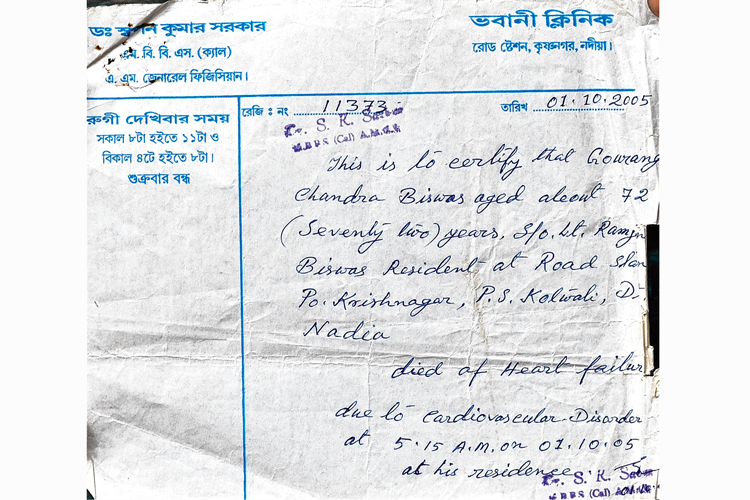 ডঃ স্বপন কুমার সরকার
এম. বি. বি. এস. (ক্যাল)
এ. এম. জেনারেল ফিজিসিয়ান।
ভবানী ক্লিনিক
রোড ষ্টেশন, কৃষ্ণনগর, নদীয়া।
রুগী দেখিবার সময়
সকাল ৮টা হইতে ১১টা ও
বিকাল ৪টে হইতে ৮টা।
শুক্রবার বন্ধ
রেজি : নং 11373
তারিখ 01.10.2005
Dr. S. K. Sarkar
M.B.B.S (Cal) A.M.
This is to certify that Gourang
Chandra Biswas aged about 72
(Seventy two) years, S/o. Lt.
Biswas Resident at Road
Po. Krishnagar, P.S. Kotwali, Dt.
Nadia
died of Heart failur
due to Cardiovascular Disorder
at 5.15 A.M. on 01.10.05
at his residence
Dr. S. K. Sarkar
M.B.B.S (Cal)